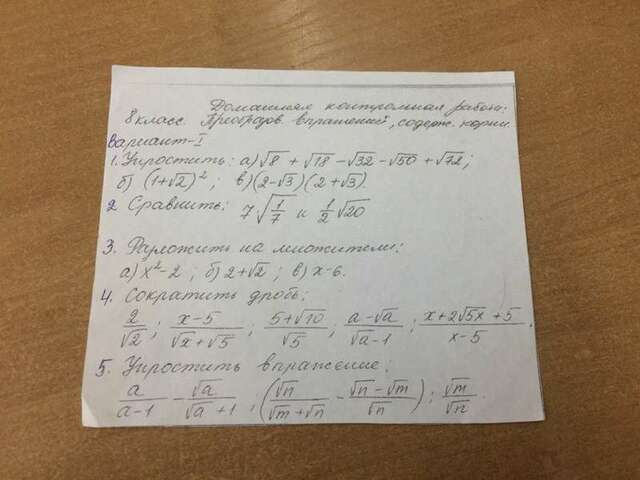 Домашняя контрольная работа:
8 класс. Преобразов. выражений, содерж. корни.
Вариант-I
1. Упростить: а) √8 + √18 - √32 - √50 + √72;
б) (1+√2)²; в) (2-√3)(2+√3).
2 Сравнить: 7√(1/7) и 1/2 √20
3. Разложить на множители:
а) x²-2; б) 2+√2; в) x-6.
4. Сократить дробь:
2/√2; (x-5)/(√x+√5); (5+√10)/√5; (a-√a)/(√a-1); (x+2√5x+5)/(x-5).
5. Упростить выражение:
a/(a-1) - √a/(√a+1); (√n/(√m+√n) - (√n-√m)/√n) : √m/√n.